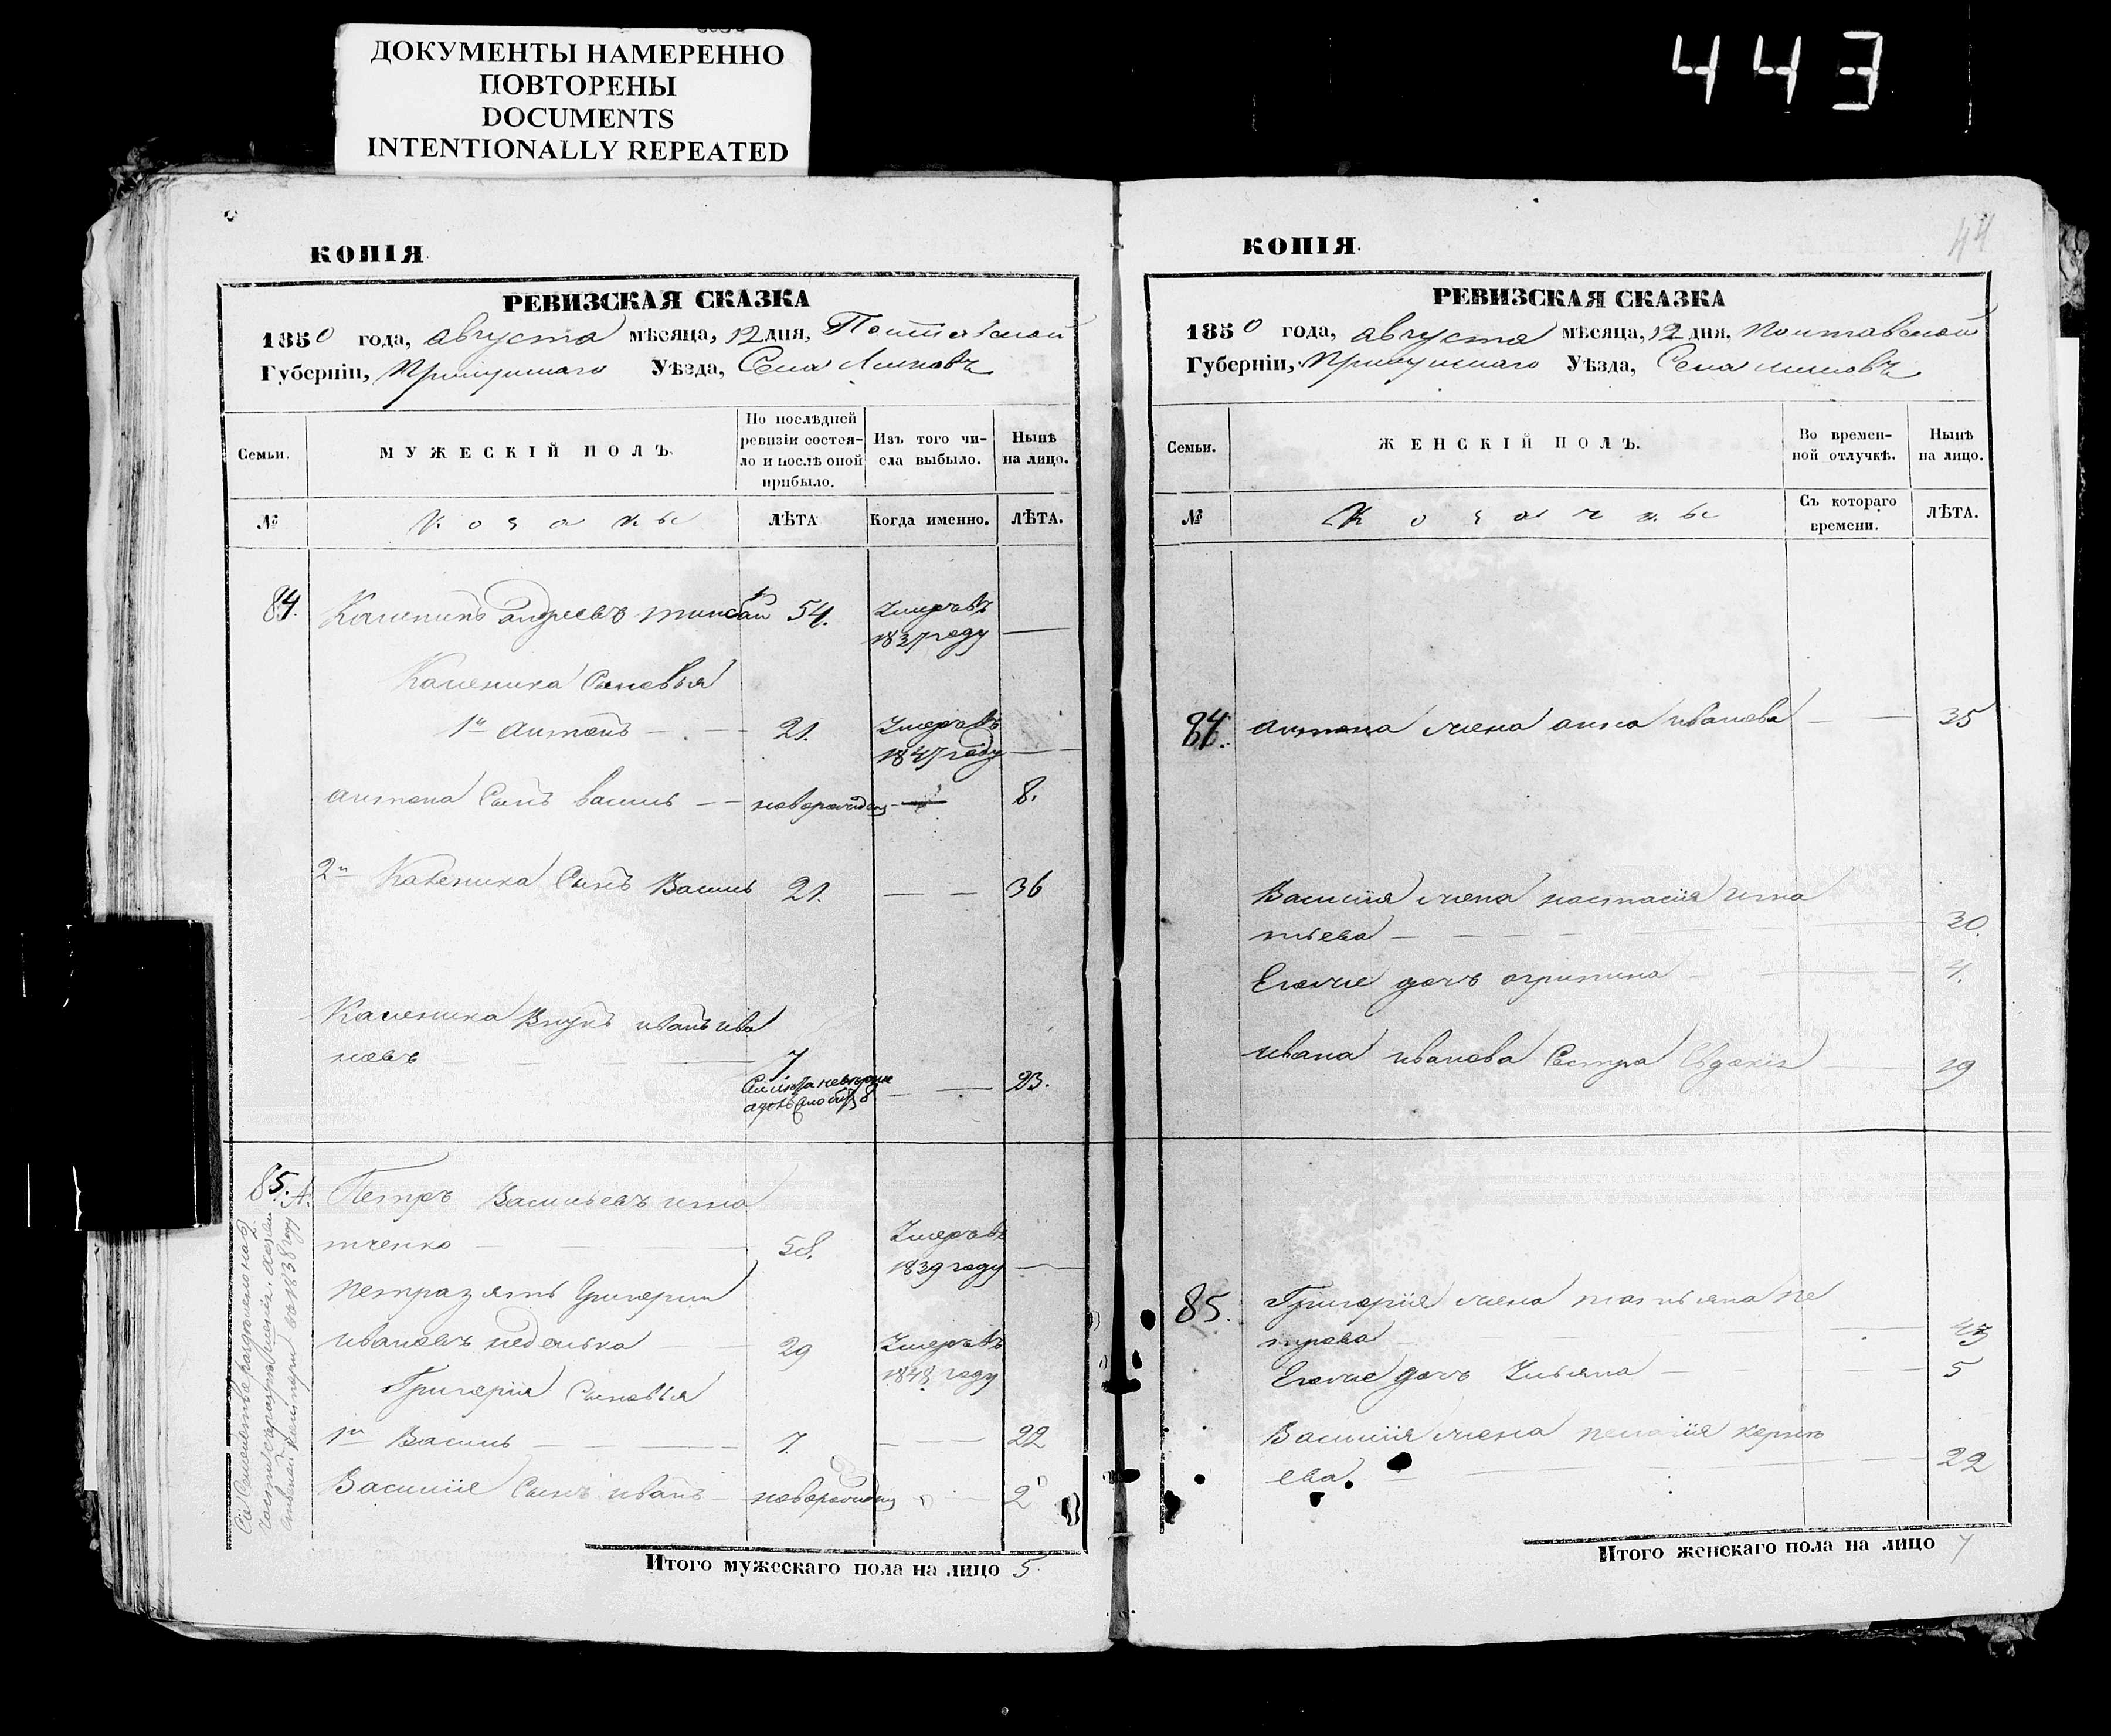 ДОКУМЕНТЫ НАМЕРЕННО
ПОВТОРЕНЫ
DOCUMENTS
INTENTIONALLY REPEATED
443
КОПІЯ.
РЕВИЗСКАЯ СКАЗКА
1850 года, августа мѣсяца, 12 дня, Полтавской
Губерніи, Прилуцкаго Уѣзда, Села
Семьи.
МУЖЕСКІЙ ПОЛЪ.
По послѣдней ревизіи состоя-
ло и послѣ оной прибыло.
Изъ того чи-
сла выбыло.
Нынѣ
на лицо.
№
Козаки
ЛѢТА
Когда именно.
ЛѢТА.
84. Каленикъ андреевъ 54. Умеръ въ
1837 году —
Каленика Сыновья
1й антонъ — — 21. Умеръ въ
1847 году —
антона Сынъ василь — — новорожденъ — 8.
2й Каленика Сынъ Василь 21. — — 36
Каленика Внукъ иванъ ива
новъ — — — 7
— 23.
85. Петръ Васильевъ игна
тченко — — — 58. Умеръ въ
1839 году —
петра зять Григорий
ивановъ — 29 Умеръ въ
1848 году
Григорія Сыновья
1й Василь — — — 7. — — 22
Василия Сынъ иванъ — новорожденъ — 2
Итого мужескаго пола на лицо 5.
44
КОПІЯ.
РЕВИЗСКАЯ СКАЗКА
1850 года, августа мѣсяца, 12 дня, Полтавской
Губерніи, Прилуцкаго Уѣзда, Села
Семьи.
ЖЕНСКІЙ ПОЛЪ.
Во времен-
ной отлучкѣ.
Нынѣ
на лицо.
№
Козачки
Съ котораго
времени.
ЛѢТА.
84. антона жена анна иванова — — 35
Василия жена настасия игна
тьева — — — — 30.
Ихъ дочь агрипина — 4.
ивана иванова Сестра Евдокія — 19
85. Григория жена татьяна пе
трова — — 43
Ея дочь Ульяна — — 5
Василия жена пелагия
ева. — — — 22
Итого женскаго пола на лицо 7